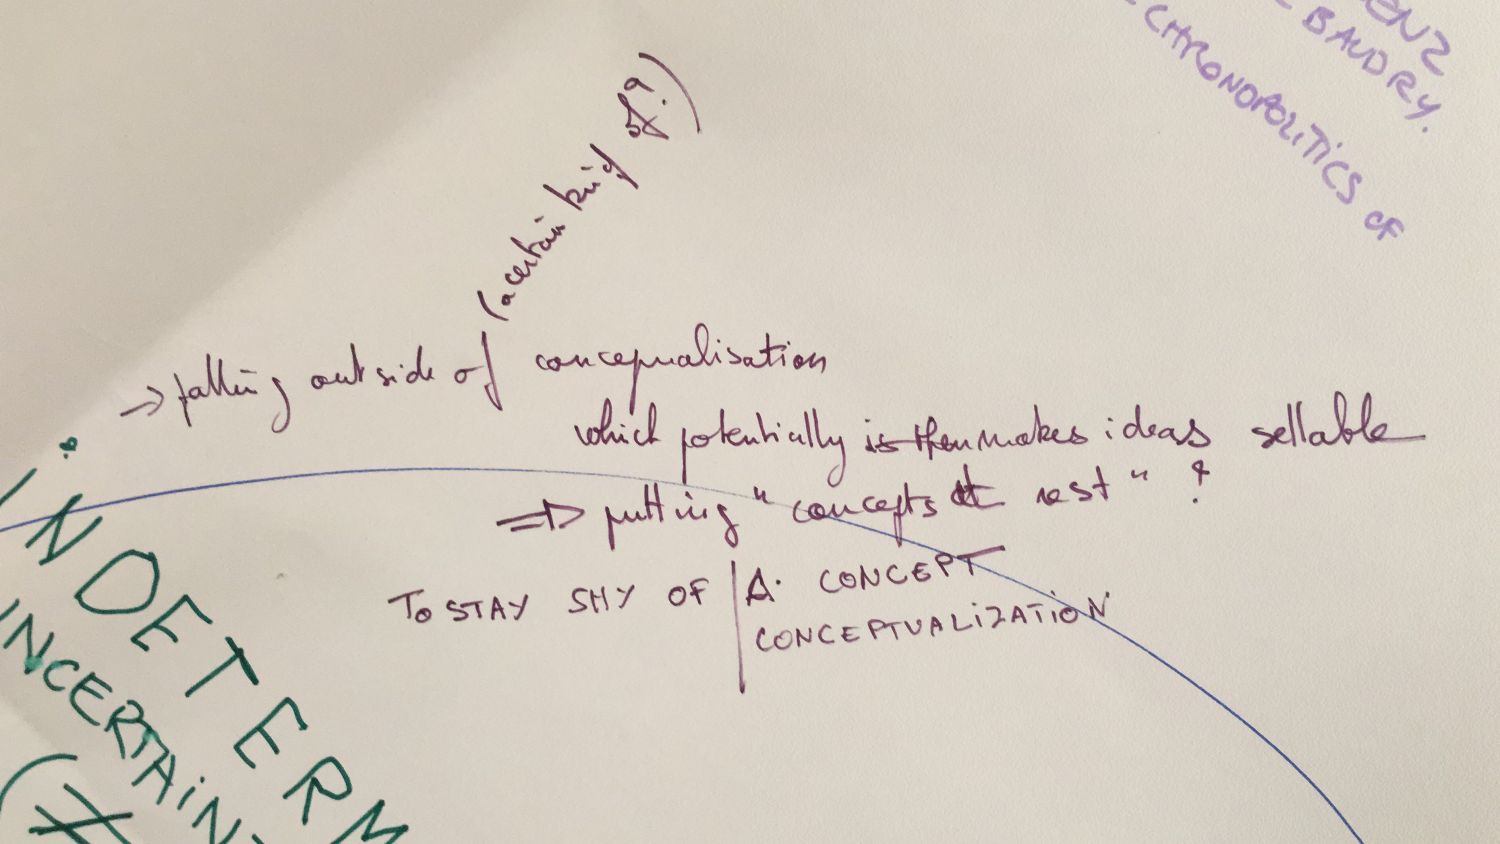 ENZ
BAUDRY.
CHRONOPOLITICS OF
(a certain kind of?)
→ falling outside of concepualisation
which potentially is then makes ideas sellable
⇒ putting "concepts at rest" ?
TO STAY SHY OF | A. CONCEPT
CONCEPTUALIZATION
INDETERM
UNCERTAIN
(≠